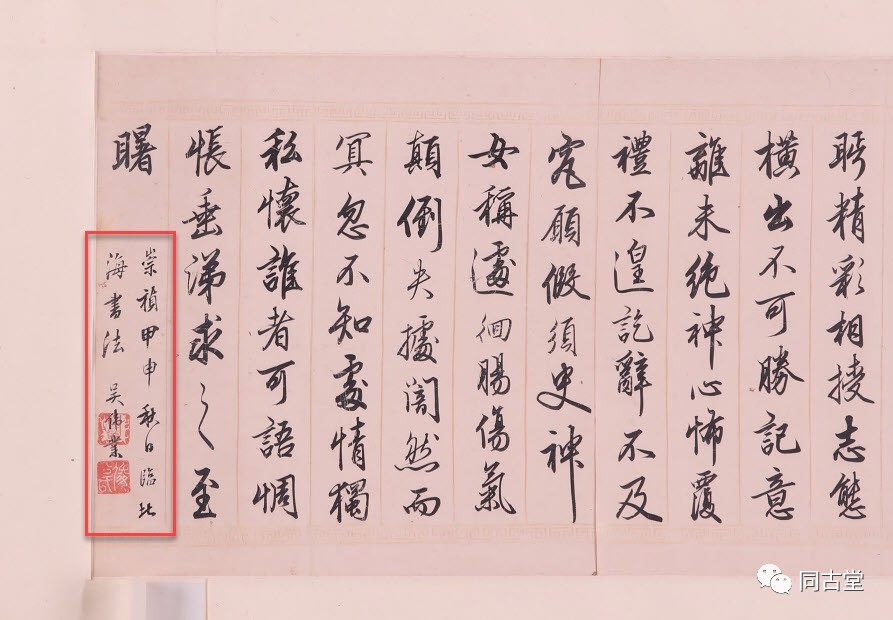 眄精彩相授志態
橫出不可勝記意
離未絕神心怖覆
禮不遑訖辭不及
究願假須臾神
女稱遽徊腸傷氣
顛倒失據闇然而
冥忽不知處情獨
私懷誰者可語惆
悵垂涕求之至
曙
崇禎甲申秋日臨北
海書法 吳偉業
同古堂